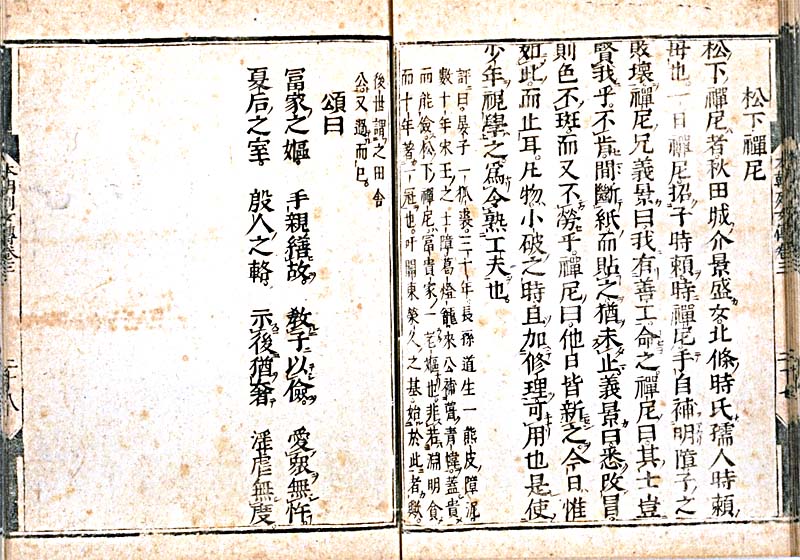 松下禪尼
松下禪尼者秋田城介景盛女北條時氏孺人時頼
母也。一日禪尼招子時頼時禪尼手自補明障子之
敗壞禪尼兄義景曰我有善工命之禪尼曰其士豈
賢我乎。不肯間斷紙而貼之猶未止義景曰悉改冒
則色不斑而又不勞乎禪尼曰他日皆新之。今日惟
如此而止耳。凡物小破之時且加修理可用也是使
少年視學之爲令熟工夫也。
評曰晏子一狐裘三十年長孫道生一熊皮障泥
數十年宋王之土障葛燈籠來公補青幃蓋貴
而能儉松下禪尼冨貴家一老嫗也非若淵明食
而十年著一冠也吁關東榮久之基始於此者歟
後世謂之田舎
公又過而已。
頌曰
冨家之嫗 手親繕故。 教子以儉。 愛衆無忤
夏后之室。 殷人之輅。 示後猶奢 淫虐無度。
本朝列女傳卷三
二十八